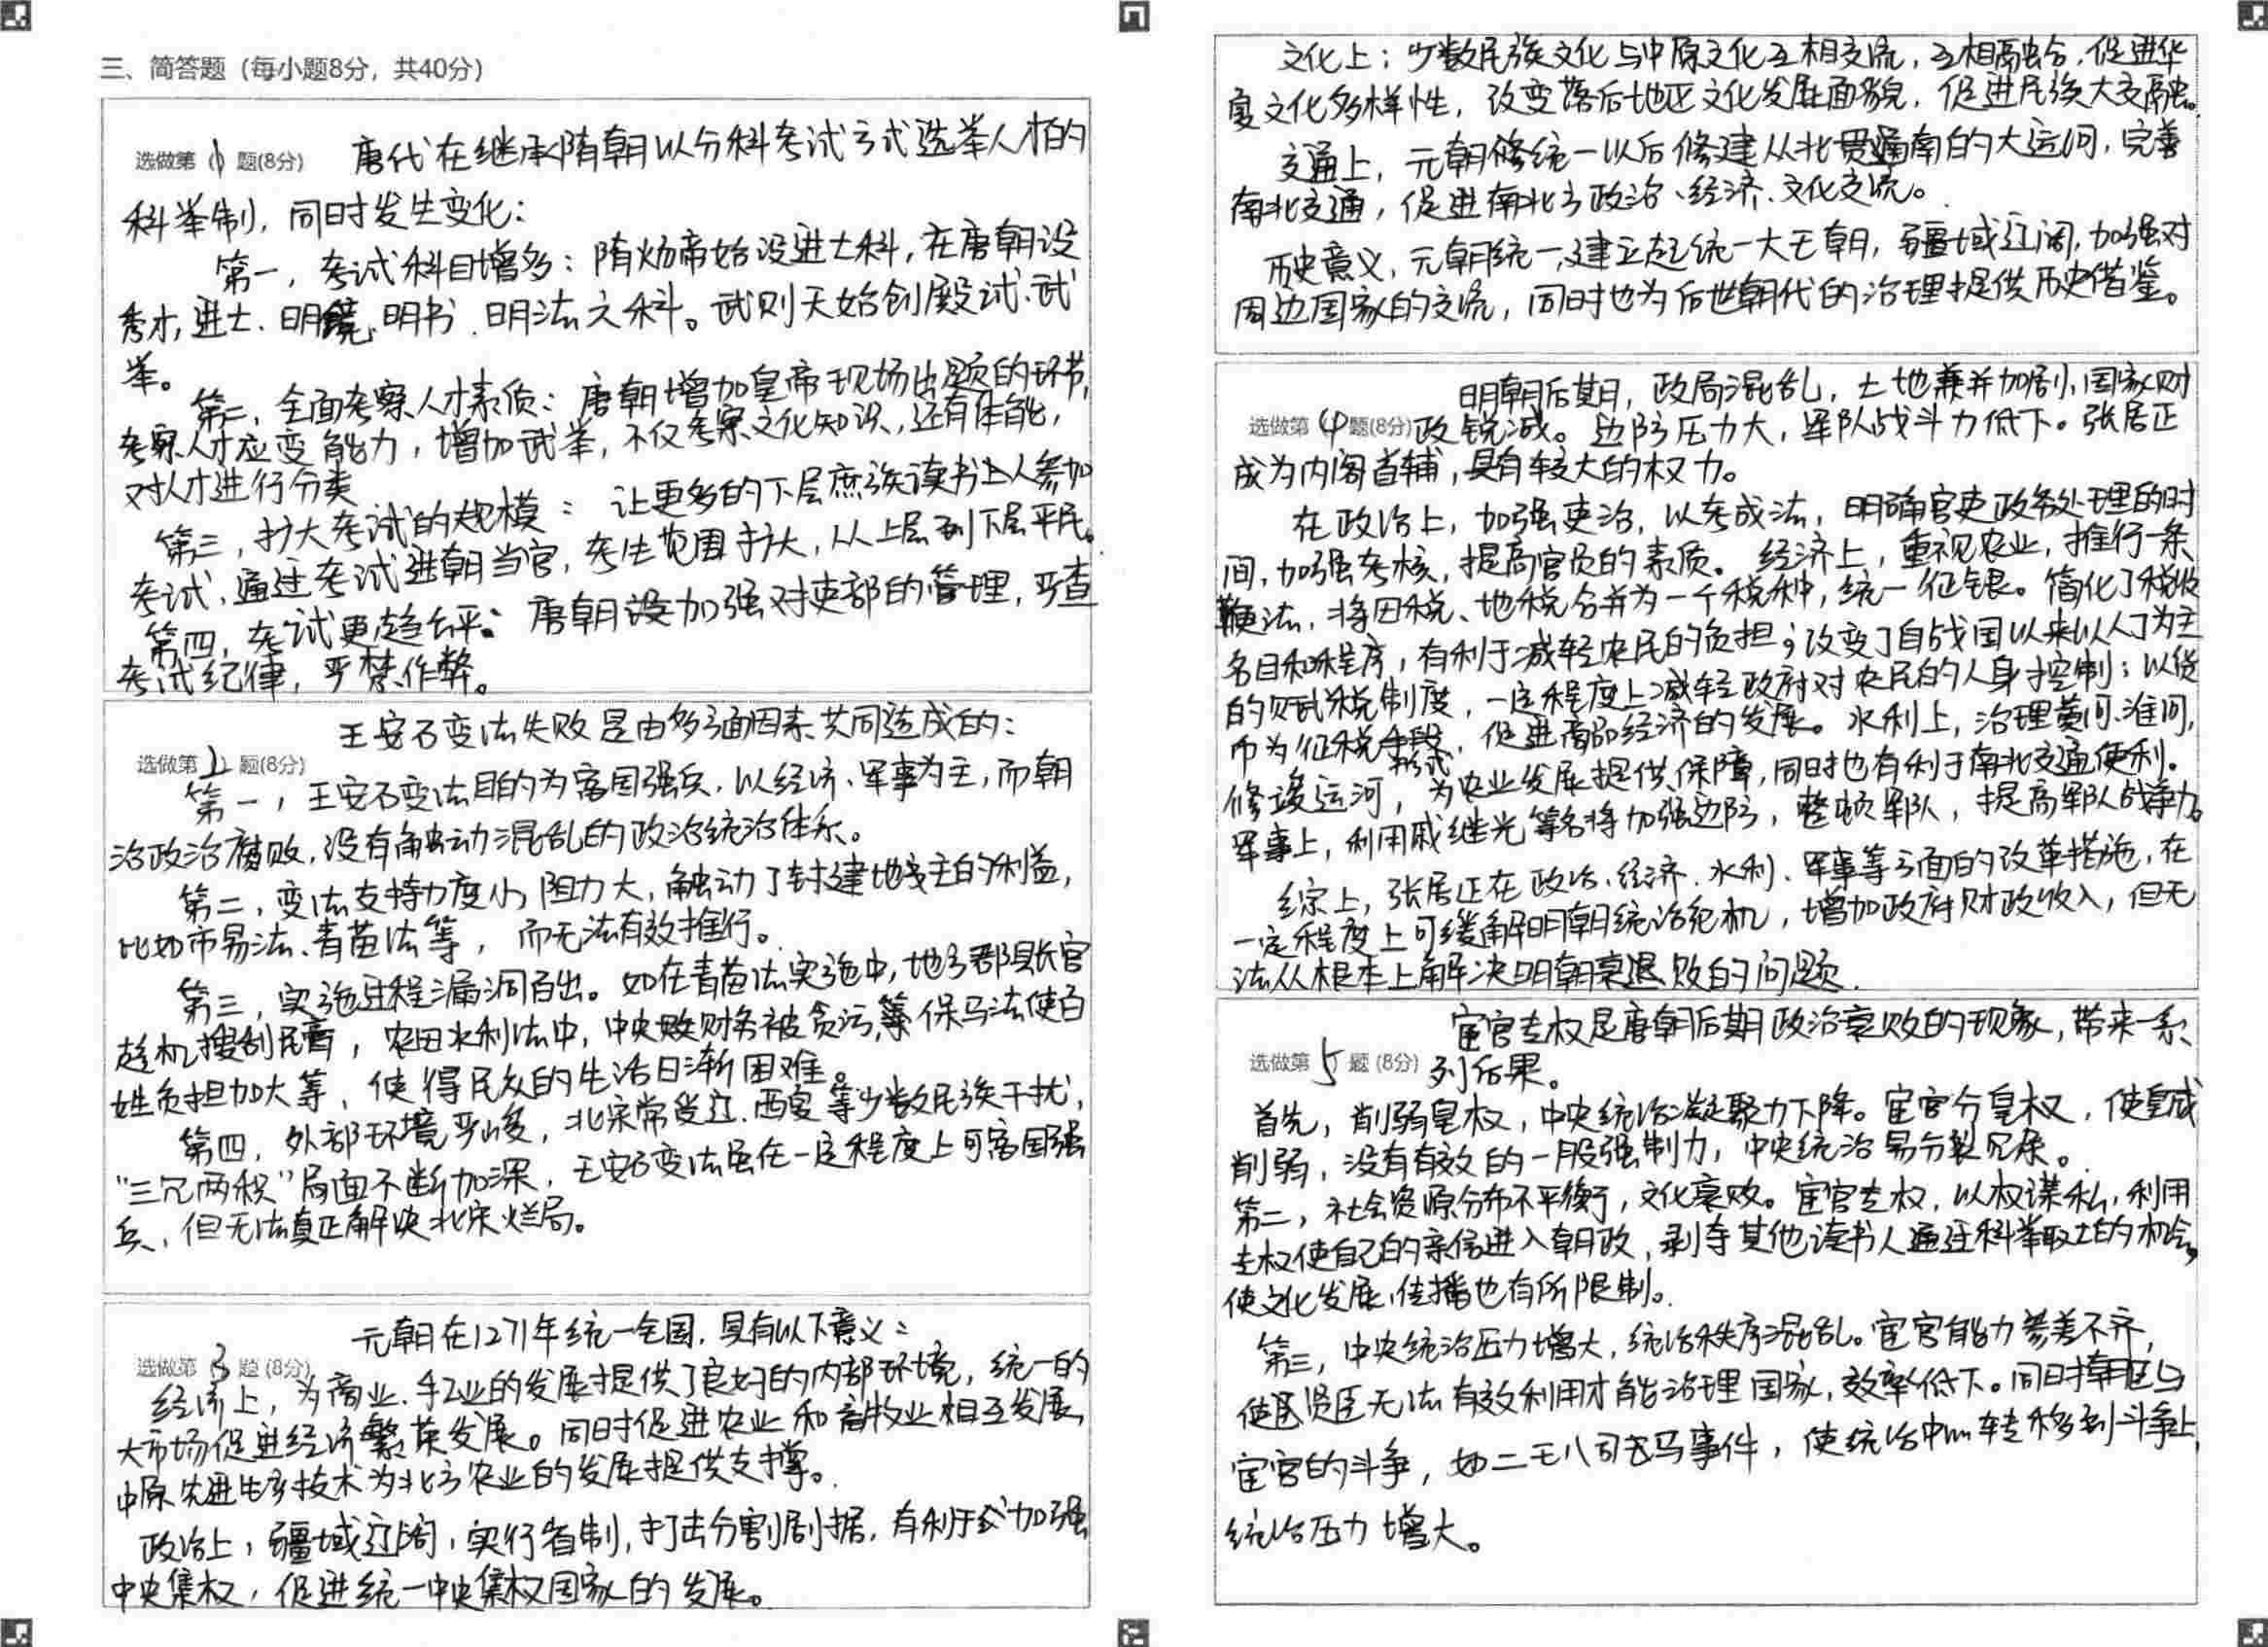 三、简答题（每小题8分，共40分）
唐代在继承隋朝以分科考试方式选举人才的
选做第（1）题(8分)
科举制，同时发生变化：
第一，考试科目增多：隋炀帝始设进士科，在唐朝设
秀才，进士、明镜、明书、明法六科。武则天始创殿试、武
举。
第二，全面考察人才素质：唐朝增加皇帝现场出题的环节，
考察人才应变能力，增加武举，不仅考察文化知识，还有体能，
对人才进行分类
第三，扩大考试的规模：让更多的下层庶族读书上人参加
考试，通过考试进朝当官，考生范围扩大，从上层到下层平民。
第四，考试更趋公平：唐朝设加强对吏部的管理，严查
考试纪律，严禁作弊。
王安石变法失败是由多方面因素共同造成的：
选做第2题(8分)
第一，王安石变法目的为富国强兵，以经济、军事为主，而朝
治政治腐败，没有触动混乱的政治统治体系。
第二，变法支持力度小，阻力大，触动了封建地主的利益，
比如市易法、青苗法等，而无法有效推行。
第三，实施进程漏洞百出。如在青苗法实施中，地方郡县长官
趁机搜刮民膏，农田水利法中，中央财务被贪污，保马法使百
姓负担加大等，使得民众的生活日渐困难。
第四，外部环境严峻，北宋常受辽、西夏等少数民族干扰，
“三冗两积”局面不断加深，王安石变法虽在一定程度上可富国强
兵，但无法真正解决北宋烂局。
元朝在1271年统一全国，具有以下意义：
选做第3题(8分)
经济上，为商业、手工业的发展提供了良好的内部环境，统一的
大市场促进经济繁荣发展。同时促进农业和畜牧业相互发展，
中原先进生产技术为北方农业的发展提供支撑。
政治上，疆域辽阔，实行省制，打击分割剧据，有利于加强
中央集权，促进统一中央集权国家的发展。
文化上：少数民族文化与中原文化互相交流，互相融合，促进华
夏文化多样性，改变落后地区文化发展面貌，促进民族大交融。
交通上，元朝修统一以后修建从北贯通南的大运河，完善
南北交通，促进南北方政治、经济、文化交流。
历史意义，元朝统一，建立起统一大王朝，疆域辽阔，加强对
周边国家的交流，同时也为后世朝代的治理提供历史借鉴。
明朝后期，政局混乱，土地兼并加剧，国家财
选做第4题(8分)政锐减。边防压力大，军队战斗力低下。张居正
成为内阁首辅，具有较大的权力。
在政治上，加强吏治，以考成法，明确官吏政务处理的时
间，加强考核，提高官员的素质。经济上，重视农业，推行一条
鞭法，将田税、地税合并为一个税种，统一征银。简化了税收
名目和程序，有利于减轻农民的负担；改变了自战国以来以人丁为主
的赋税制度，一定程度上减轻政府对农民的人身控制；以货
币为征税形式，促进商品经济的发展。水利上，治理黄河、淮河，
修浚运河，为农业发展提供保障，同时也有利于南北交通便利。
军事上，利用戚继光等名将加强边防，整顿军队，提高军队战争力。
综上，张居正在政治、经济、水利、军事等方面的改革措施，在
一定程度上可缓解明朝统治危机，增加政府财政收入，但无
法从根本上解决明朝衰退败的问题.
宦官专权是唐朝后期政治衰败的现象，带来一系
选做第5题(8分)列后果。
首先，削弱皇权，中央统治凝聚力下降。宦官分皇权，使皇威
削弱，没有有效的一股强制力，中央统治易分裂冗杂。
第二，社会资源分布不平衡，文化衰败。宦官专权，以权谋私，利用
专权使自己的亲信进入朝政，剥夺其他读书人通过科举取士的机会，
使文化发展、传播也有所限制。
第三，中央统治压力增大，统治秩序混乱。宦官能力参差不齐，
使贤臣无法有效利用才能治理国家，效率低下。同时朝廷与
宦官的斗争，如二王八司马事件，使统治中心转移到斗争上，
统治压力增大。